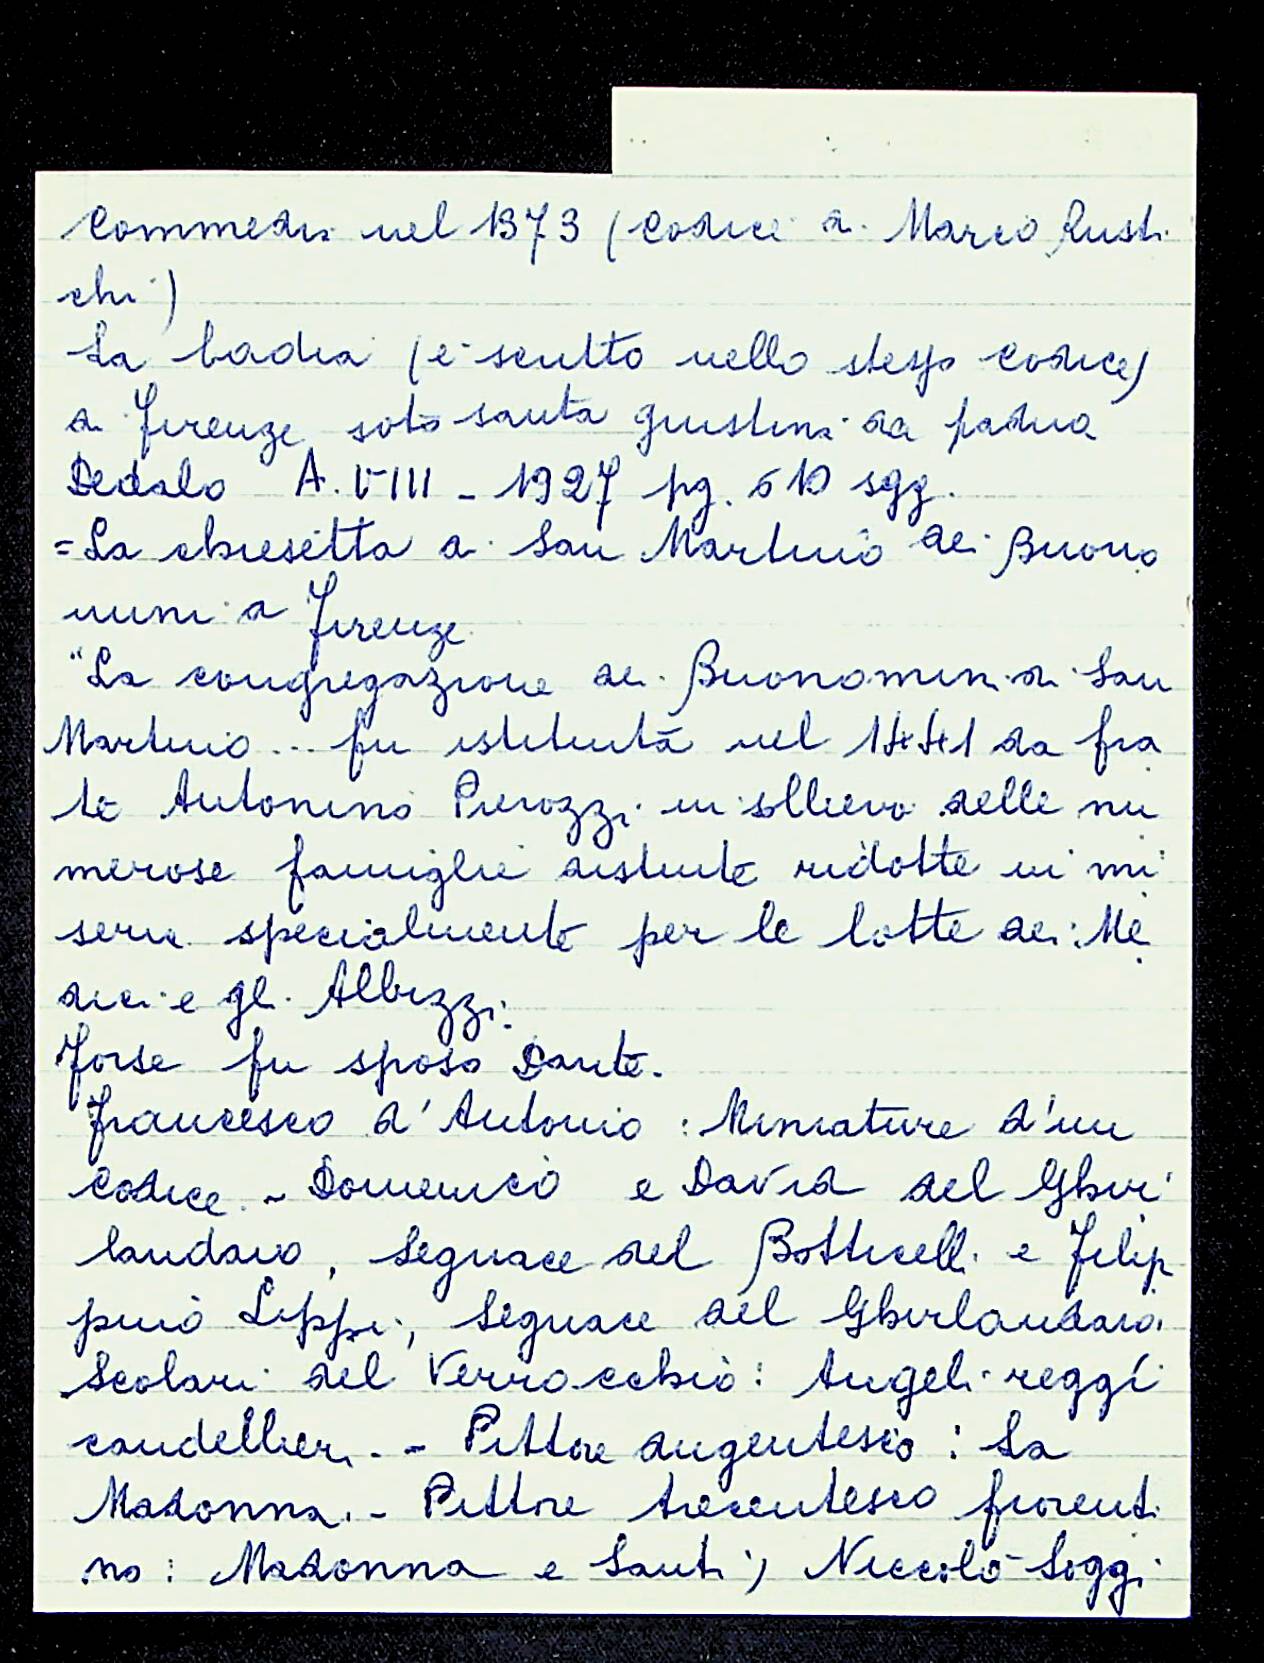 Commedia nel 1373 (Codice di Marco Rusti
chi)
La badia (è scritto nello stesso codice)
di Firenze soto santa Giustina da padua
Dedalo A. VIII - 1927 pg. 610 sgg.
= La chiesetta di San Martino dei Buono
mini a Firenze
"La congregazione dei Buonomini di San
Martino... fu istituita nel 1441 da fra
te Antonino Pierozzi in sollievo delle nu
merose famiglie distinte ridotte in mi
seria specialmente per le lotte dei Me
dici e gli Albizzi.
Forse fu sposo Dante.
Francesco d'Antonio: Miniature d'un
codice. - Domenico e David del Ghir
landaio, Seguace del Botticelli e Filip
pino Lippi, Seguace del Ghirlandaio.
Scolari del Verrocchio: Angeli reggi
candellieri. - Pittore dugentesco: La
Madonna. - Pittore trecentesco fiorenti
no: Madonna e Santi; Niccolò Soggi